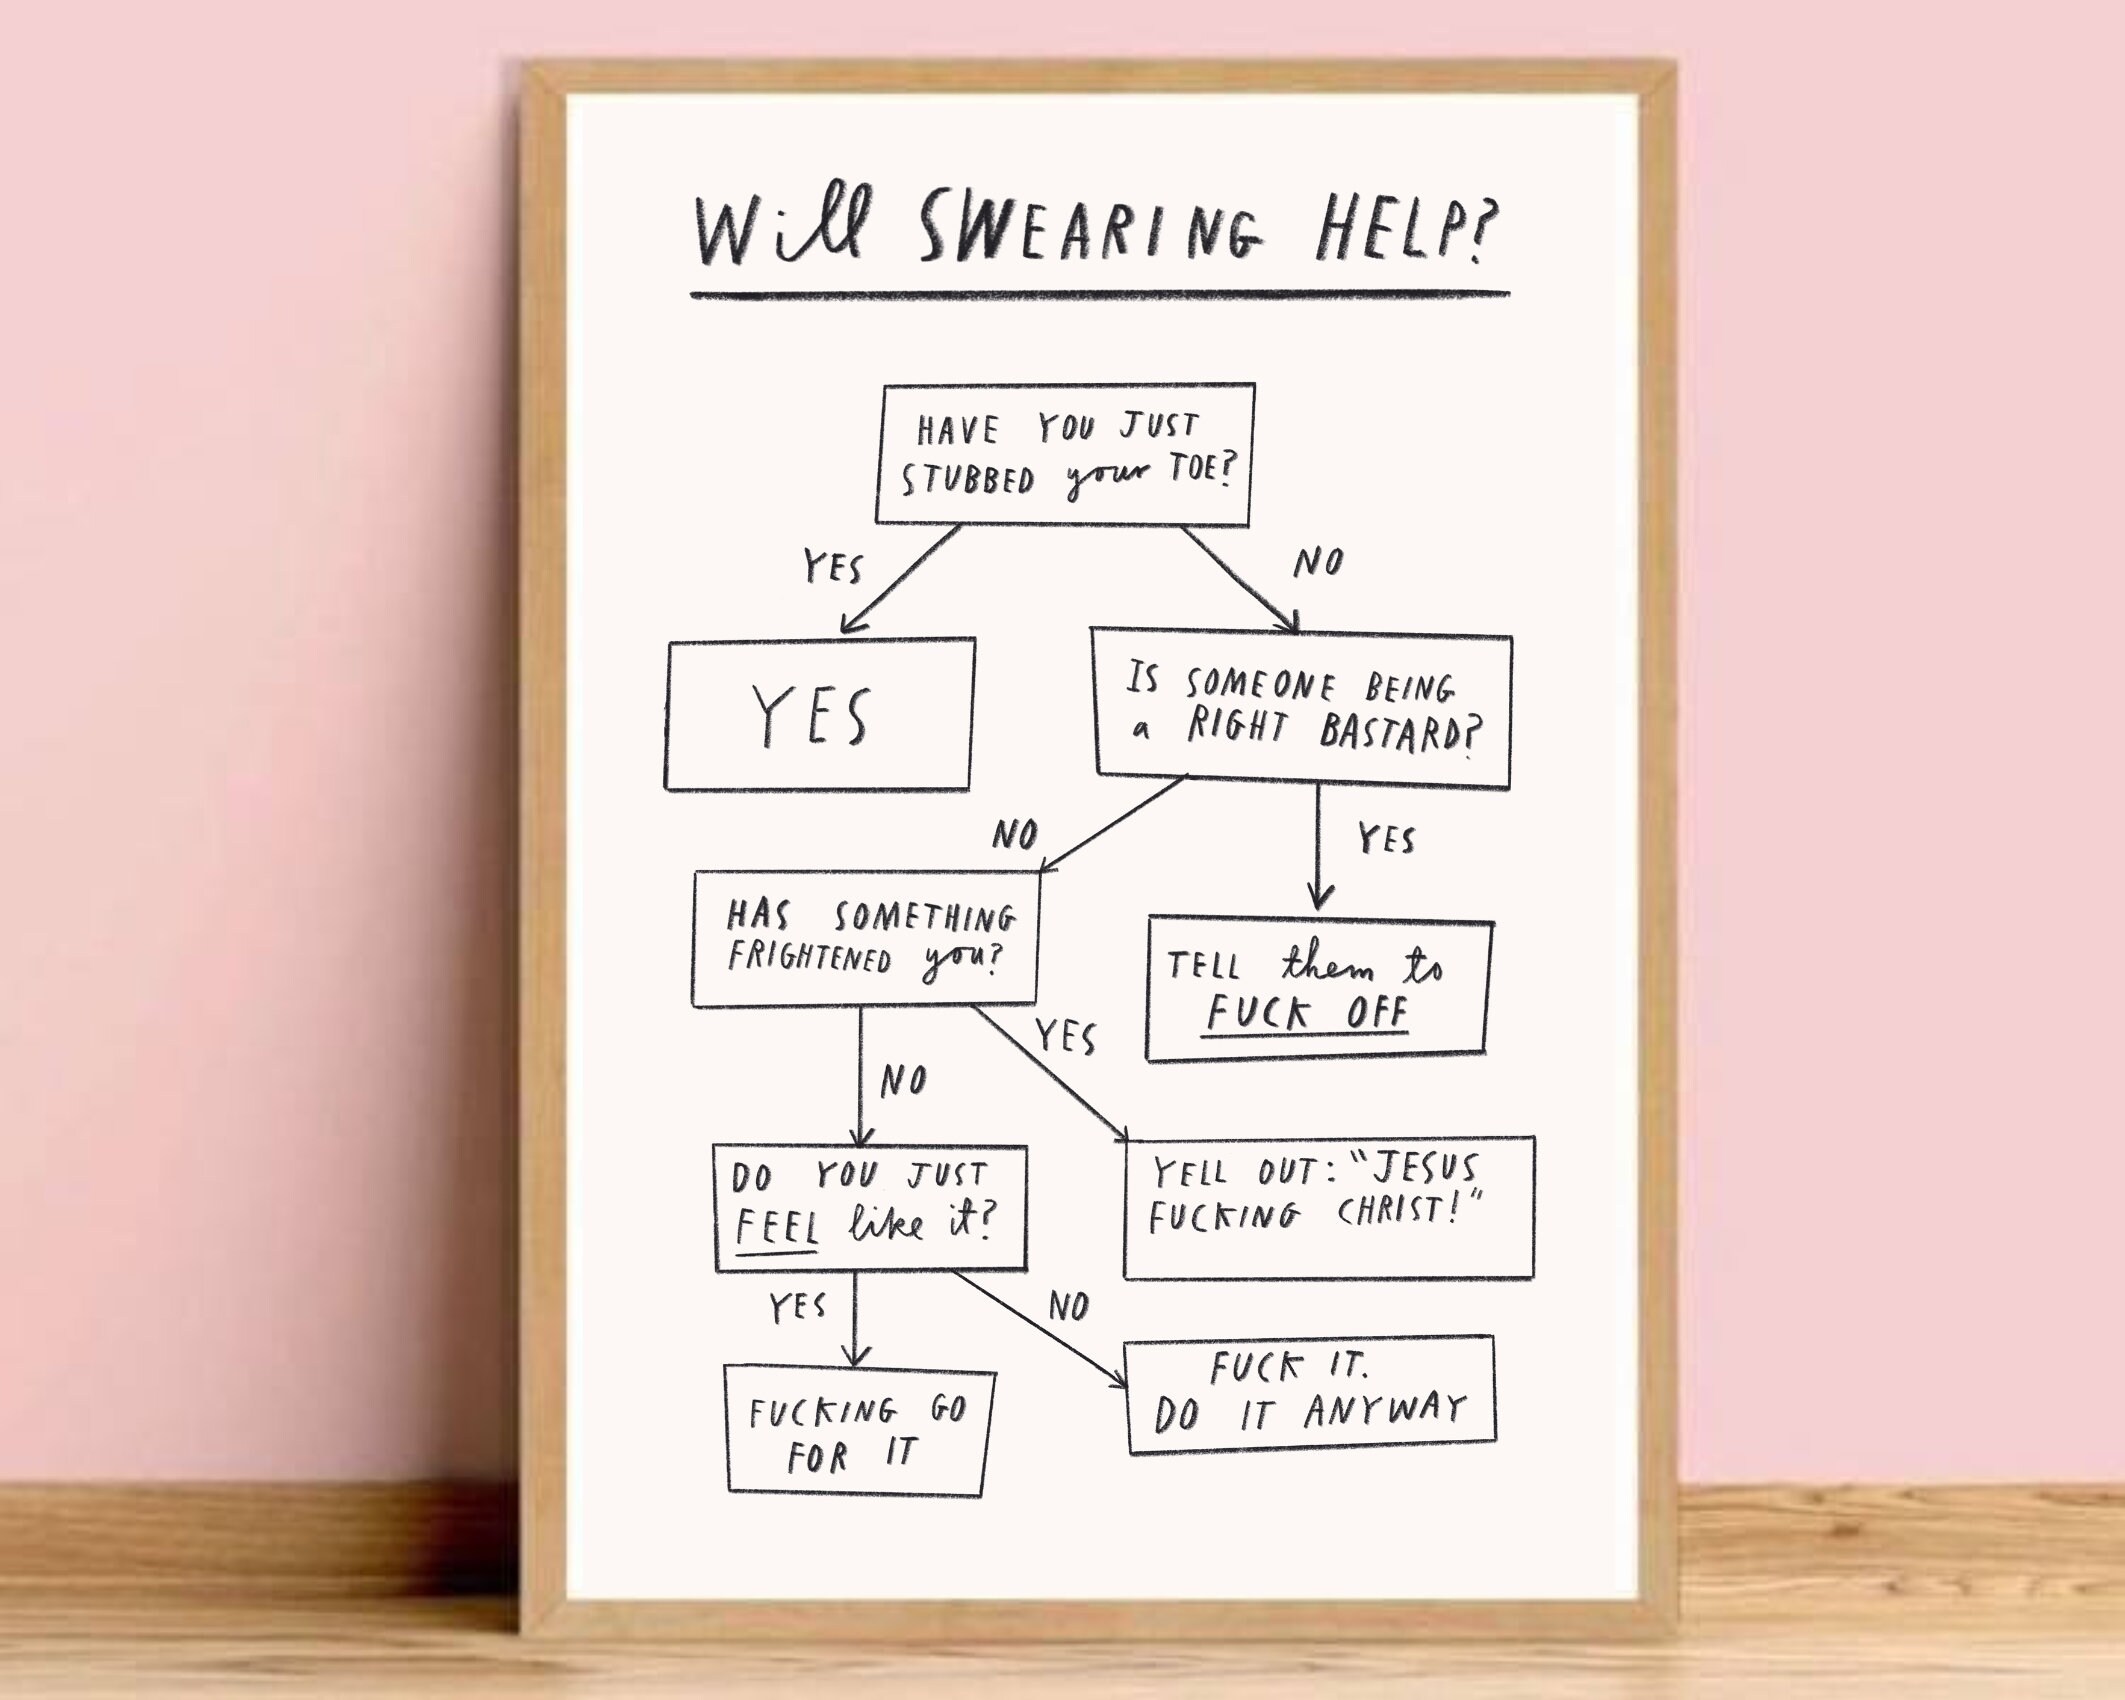 Will SWEARING HELP?
HAVE YOU JUST
STUBBED your TOE?
YES
NO
YES
IS SOMEONE BEING
a RIGHT BASTARD?
NO
YES
HAS SOMETHING
FRIGHTENED you?
TELL them to
FUCK OFF
YES
NO
DO YOU JUST
FEEL like it?
YELL OUT: "JESUS
FUCKING CHRIST!"
YES
NO
FUCKING GO
FOR IT
FUCK IT.
DO IT ANYWAY